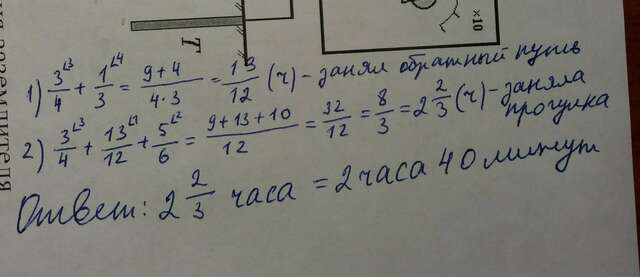 ×10
T
1) 3/4 + 1/3 = (9+4)/(4·3) = 13/12 (ч) - занял обратный путь
2) 3/4 + 13/12 + 5/6 = (9+13+10)/12 = 32/12 = 8/3 = 2 2/3 (ч) - заняла прогулка
Ответ: 2 2/3 часа = 2 часа 40 минут